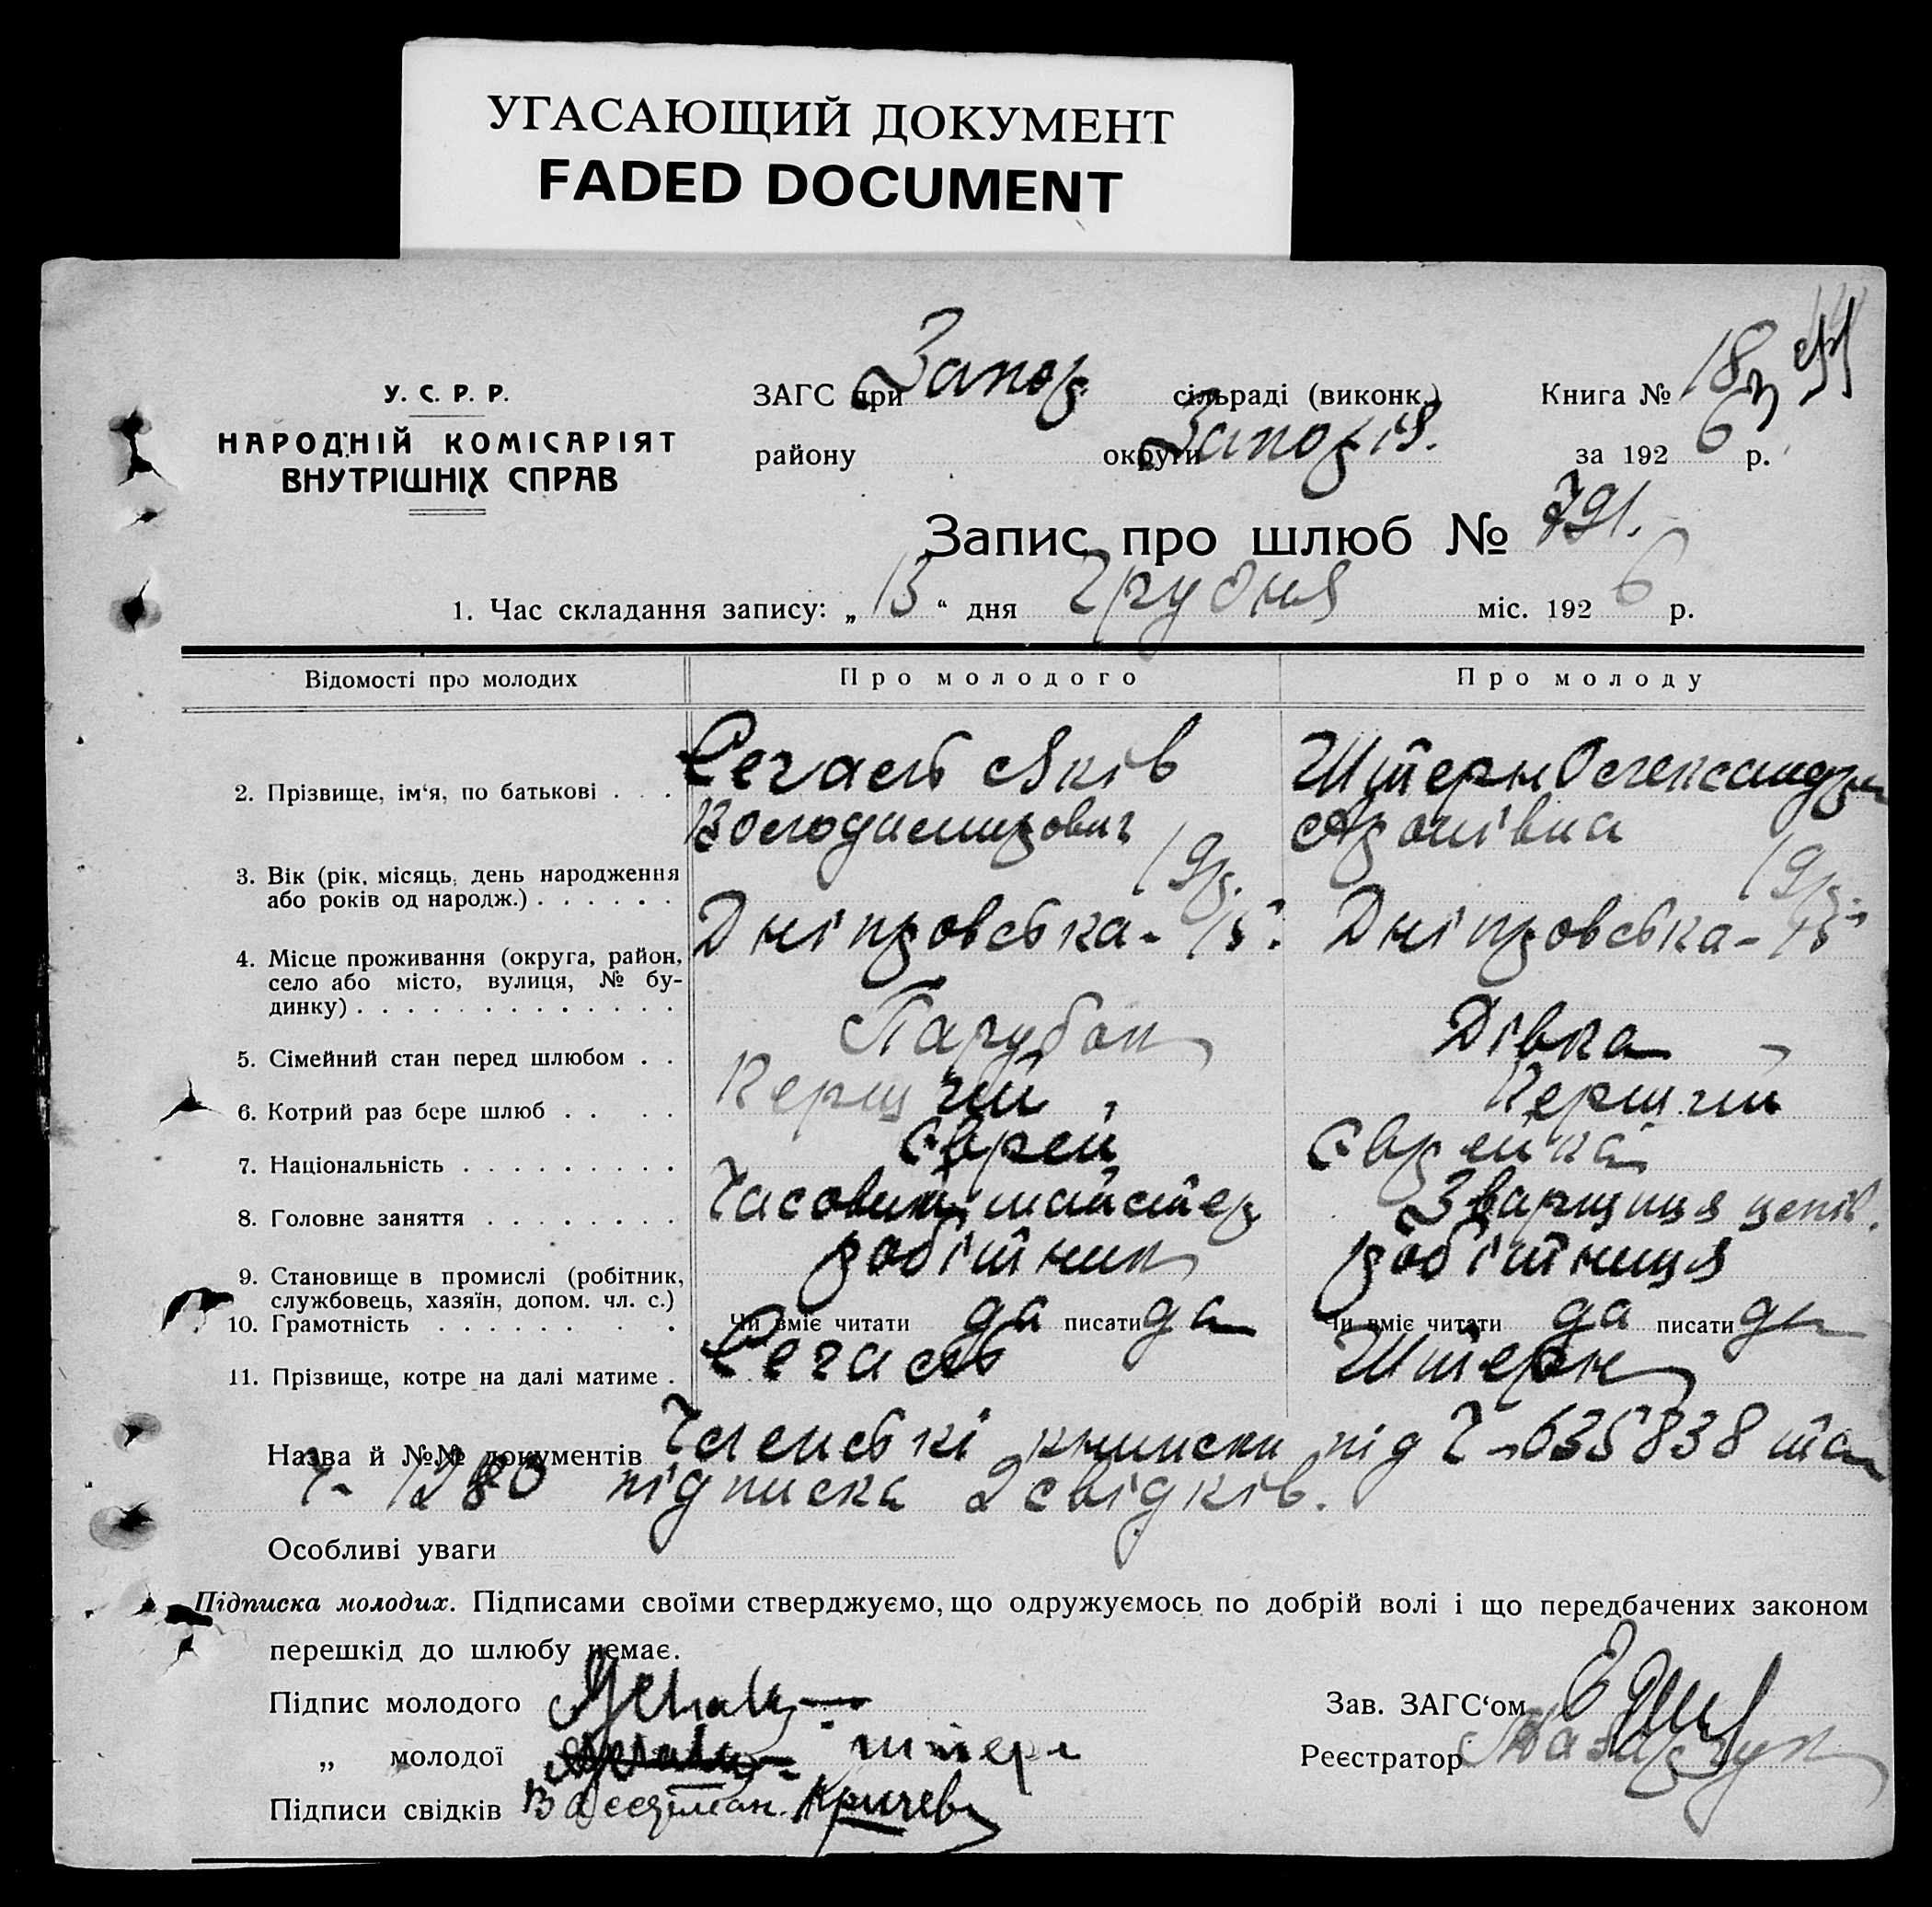 УГАСАЮЩИЙ ДОКУМЕНТ
FADED DOCUMENT
У. С. Р. Р.
НАРОДНІЙ КОМІСАРІЯТ
ВНУТРІШНІХ СПРАВ
ЗАГС при Запор. сільраді (виконк.) Книга № 18
району округи Запоріз. за 1926 р.
Запис про шлюб № 791.
1. Час складання запису: „13“ дня Грудня міс. 1926 р.
Відомості про молодих Про молодого Про молоду
2. Прізвище, ім‘я, по батькові . . . Сегаль Яків Штерн Олександра
Володимирович Аронівна
3. Вік (рік, місяць, день народження
або років од народж.) . . . . . .
Дніпровська - 15. Дніпровська - 15
4. Місце проживання (округа, район,
село або місто, вулиця, № бу-
динку) . . . . . . . . . . . . .
5. Сімейний стан перед шлюбом . . Парубок Дівка
6. Котрий раз бере шлюб . . . . Перший Перший
7. Національність . . . . . . . . . Єврей Єврейка
8. Головне заняття . . . . . . . . Часовий майстер
9. Становище в промислі (робітник, робітник робітниця
службовець, хазяїн, допом. чл. с.)
10. Грамотність . . . . . . . . Чи вміє читати да писати да Чи вміє читати да писати да
11. Прізвище, котре на далі матиме . Сегаль Штерн
Назва й №№ документів Членські книжки під Ч-635838 та
Ч- 1280 підписка 2 свідків.
Особливі уваги
Підписка молодих. Підписами своїми стверджуємо, що одружуємось по добрій волі і що передбачених законом
перешкід до шлюбу немає.
Підпис молодого Зав. ЗАГС‘ом
„ молодої Штерн Реєстратор
Підписи свідків